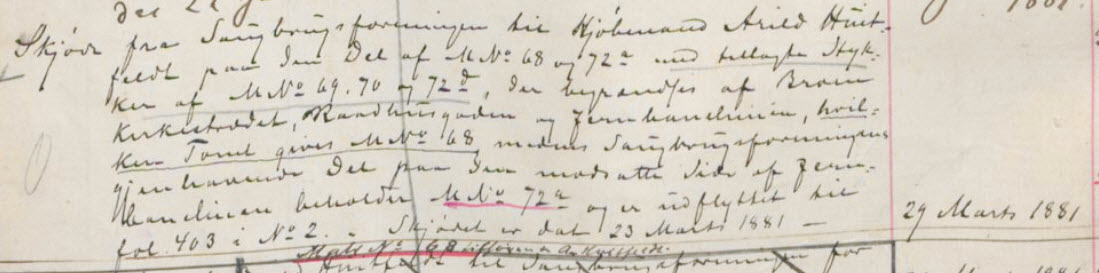 Skjøde fra Saugbrugsforeningen til Kjøbmand Arild Huit-
feldt paa den Del af M No 68 og 72a med tillagte Styk-
ker af M No 69. 70 og 72d, der begrændses af
Kirkestrædet, Raadhusgaden og Jernbanelinien, hvil-
ken Tomt gives M No 68 medens Saugbrugsforeningens
gjenhavende Del paa den modsatte Side af Jern-
banelinien beholder M No 72a og er udflyttet til
fol. 403 i No 2. - Skjødet er dat 23 Marts 1881 —
29 Marts 1881
Matr No 68
Huitfeldt til Saugbrugsforeningen for